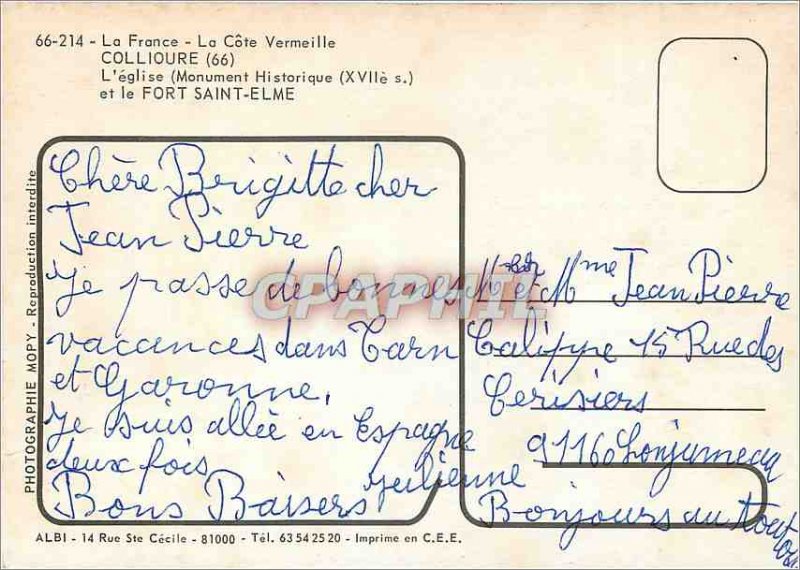 66-214 - La France - La Côte Vermeille
COLLIOURE (66)
L'église (Monument Historique (XVIIè s.)
et le FORT SAINT-ELME
PHOTOGRAPHIE MOPY - Reproduction interdite
Chère Brigitte cher
Jean Pierre
Je passe de bonnes
vacances dans Tarn
et Garonne,
Je suis allée en Espagne
deux fois
Bons Baisers Julienne
CPAPHIL
M et Mme Jean Pierre
Calippe 15 Rue des
Cerisiers
91160 Lonjumeau
Bonjours au tout
ALBI - 14 Rue Ste Cécile - 81000 - Tél. 63 54 25 20 - Imprime en C.E.E.